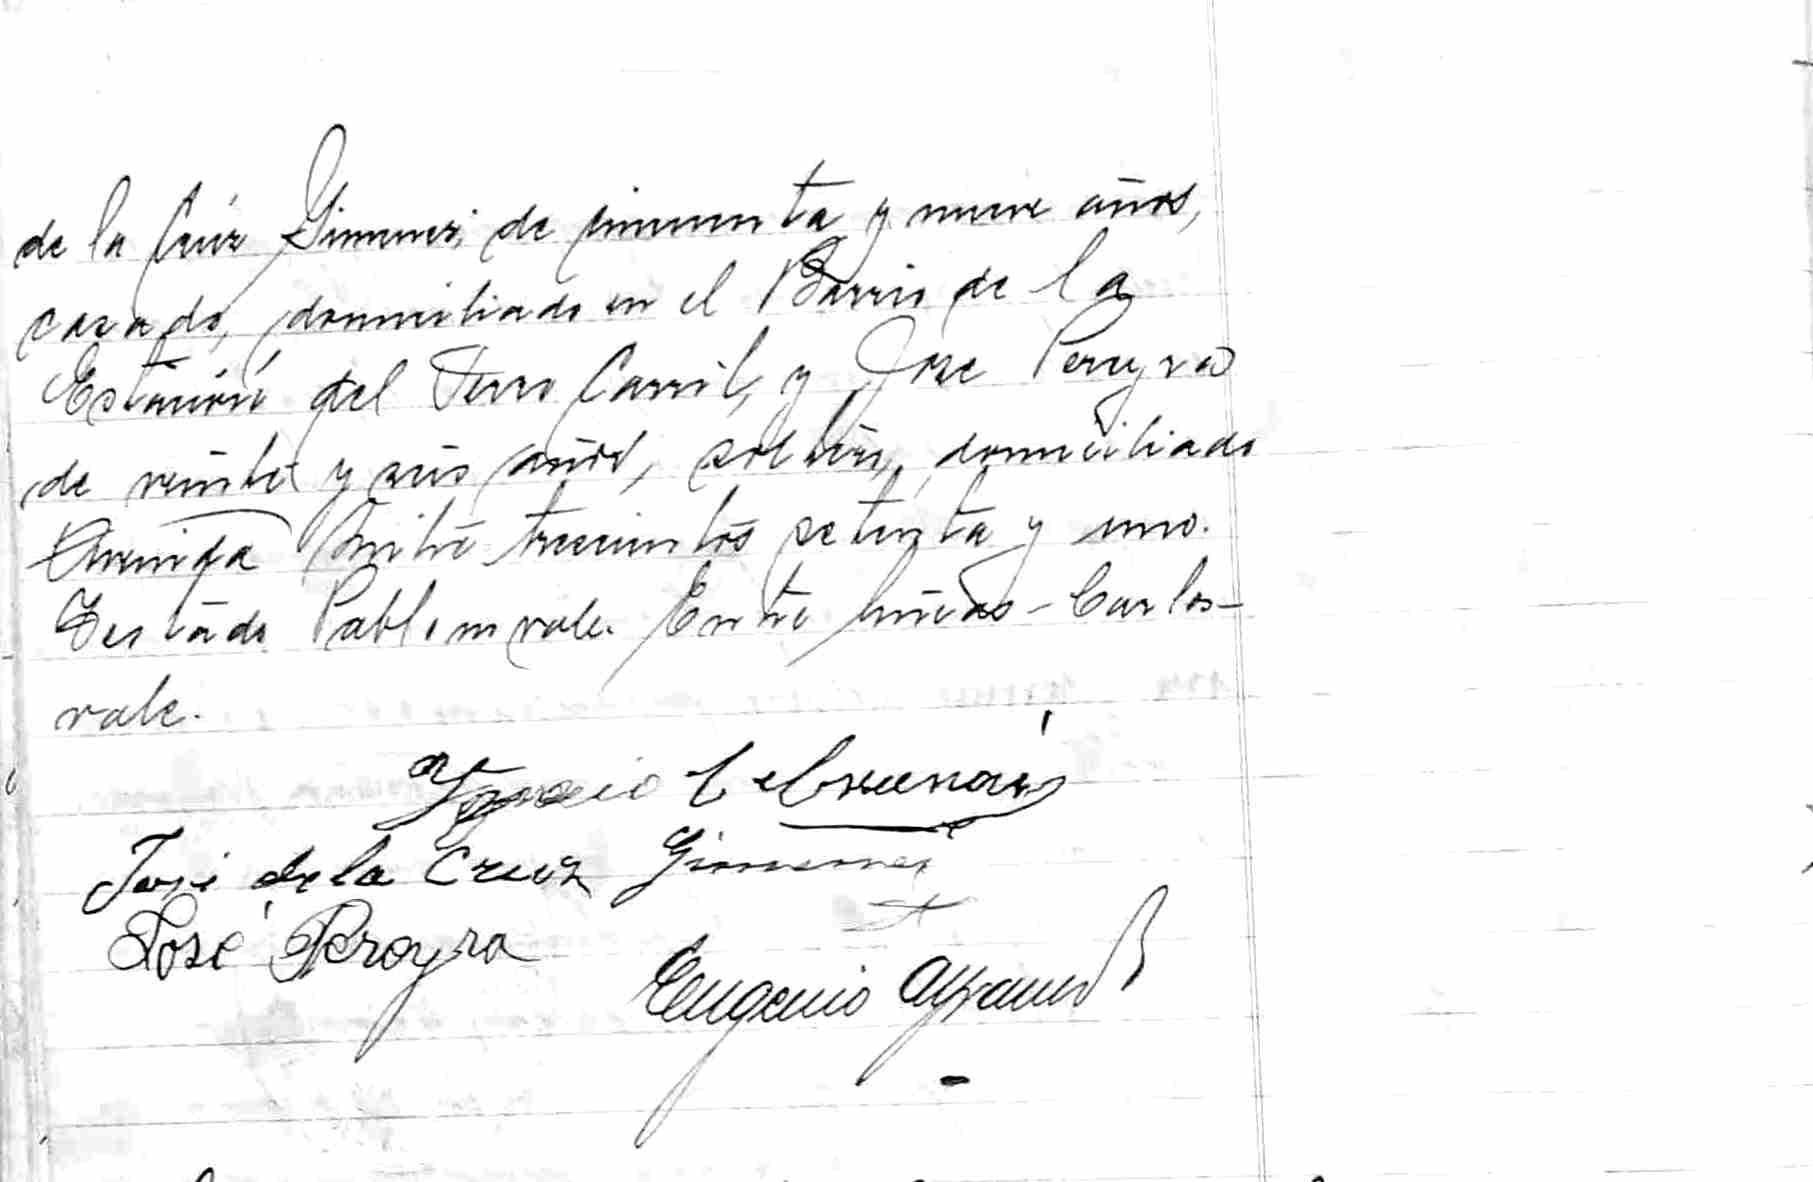 de la Cruz Gimenez, de cincuenta y nueve años,
casado, domiciliado en el Barrio de la
Estación del Ferro Carril, y José Pereyra
de veinte y seis años, soltero, domiciliado
Avenida Mitre trescientos setenta y uno.
Testado Pablo no vale. Entre líneas - Carlos -
vale.
Ygnacio
José de la Cruz Gimenez
José Pereyra
Eugenio